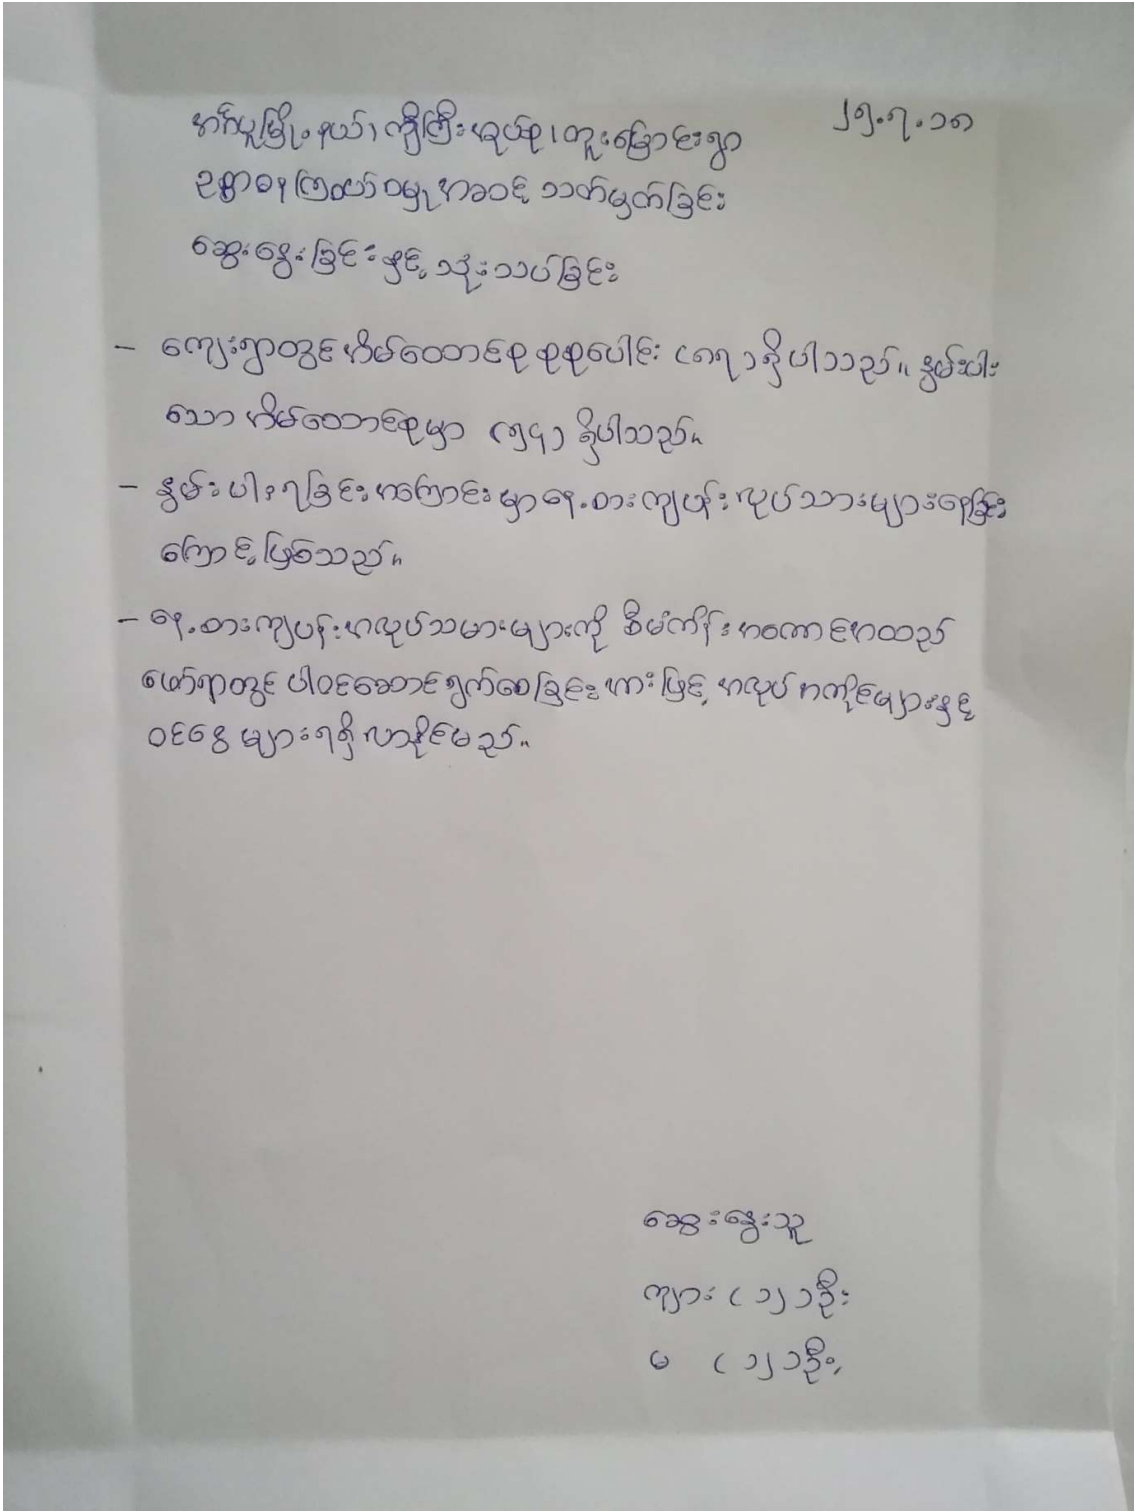 ၂၅.၇.၁၈
အင်္ဂပူမြို့နယ်၊ ကျီကြီးအုပ်စု၊ တူးမြောင်းရွာ
ဥစ္စာဓနကြွယ်ဝမှု အဆင့် သတ်မှတ်ခြင်း
ဆွေးနွေးခြင်းနှင့် သုံးသပ်ခြင်း
- ကျေးရွာတွင် အိမ်ထောင်စု စုစုပေါင်း (၈၇) ရှိပါသည်။ နွမ်းပါး
သော အိမ်ထောင်စုမှာ (၅၄) ရှိပါသည်။
- နွမ်းပါးရခြင်းအကြောင်းမှာ နေ့စားကျပန်းလုပ်သားများနေခြင်း
ကြောင့်ဖြစ်သည်။
- နေ့စားကျပန်းအလုပ်သမားများကို စီမံကိန်းအကောင်အထည်
ဖော်ရာတွင် ပါဝင်ဆောင်ရွက်စေခြင်းအားဖြင့် အလုပ်အကိုင်များနှင့်
ဝင်ငွေများရရှိလာနိုင်မည်။
ဆွေးနွေးသူ
ကျား (၁၂) ဦး
မ (၁၂) ဦး